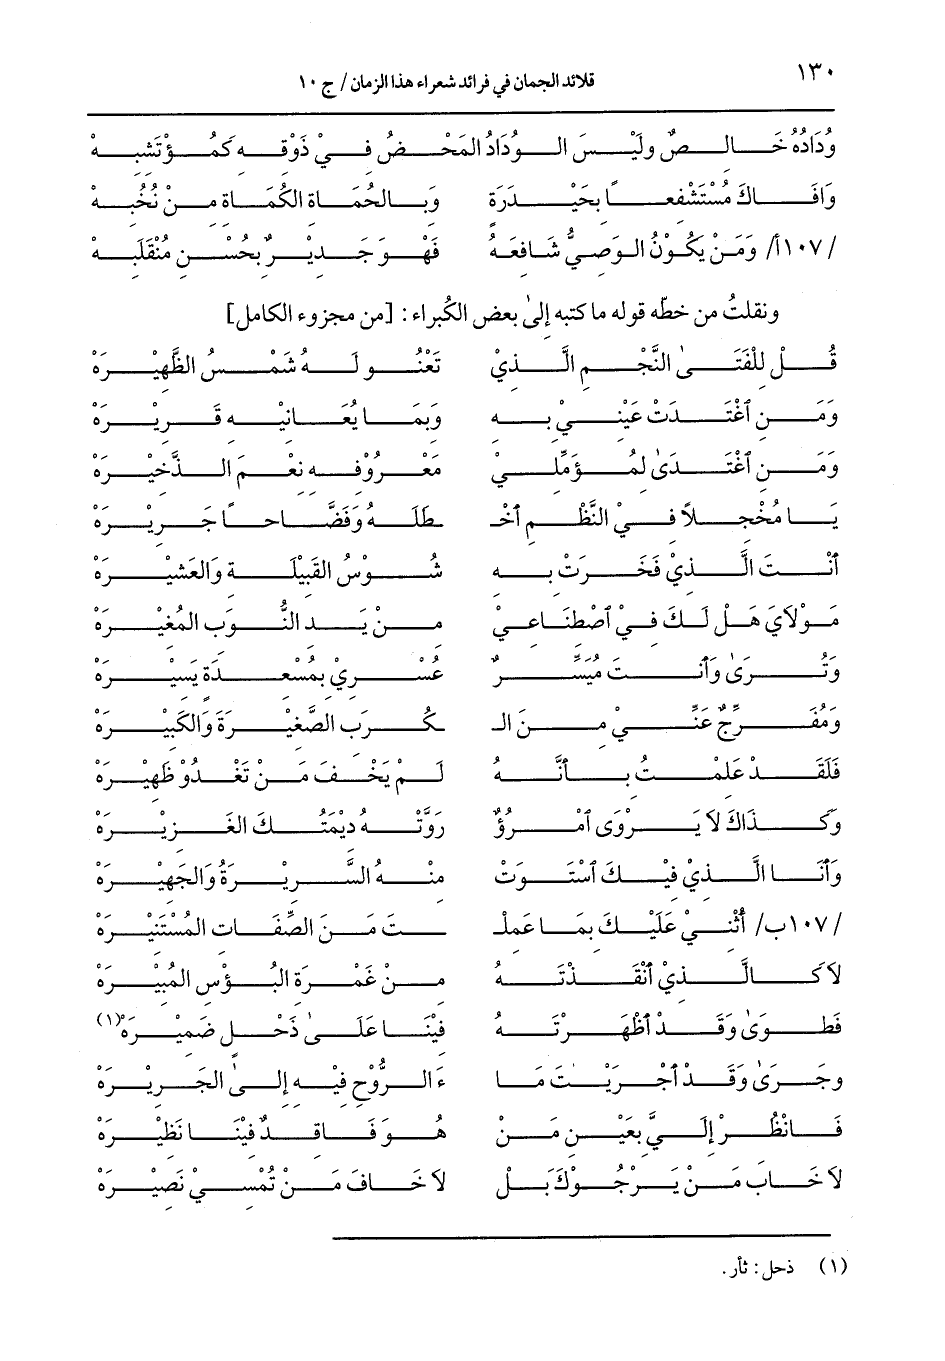 ١٣٠
قلائد الجمان في فرائد شعراء هذا الزمان / ج ١٠
وُدَادُهُ خَالصٌ ولَيْسَ الوُدَادُ المَحْضُ فِيْ ذَوْقِهِ كَمُؤْتَشِبِهْ
وَافَاكَ مُسْتَشْفِعاً بِحَيْدَرَةٍ وَبِالحُمَاةِ الكُمَاةِ مِنْ نُخُبِهْ
/١٠٧أ/ وَمَنْ يَكُوْنُ الوَصِيُّ شَافِعَهُ فَهْوَ جَدِيْرٌ بِحُسْنِ مُنْقَلَبِهْ
ونقلتُ من خطّه قوله ما كتبه إلىٰ بعض الكُبراء: [من مجزوء الكامل]
قُلْ لِلْفَتَىٰ النَّجْمِ الَّذِيْ تَعْنُو لَهُ شَمْسُ الظَّهِيْرَهْ
وَمَنِ ٱغْتَدَتْ عَيْنِيْ بِهِ وَبِمَا يُعَانِيْهِ قَرِيْرَهْ
وَمَنِ ٱغْتَدَىٰ لِمُؤَمِّلِيْ مَعْرُوْفِهِ نِعْمَ الذَّخِيْرَهْ
يَا مُخْجِلاً فِيْ النَّظْمِ أخْـ ـطَلَهُ وَفَضَّاحاً جَرِيْرَهْ
أنْتَ الَّذِيْ فَخَرَتْ بِهِ شُوْسُ القَبِيْلَةِ وَالعَشِيْرَهْ
مَوْلاَيَ هَلْ لَكَ فِيْ ٱصْطِنَاعِيْ مِنْ يَدِ النُّوَبِ المُغِيْرَهْ
وَتُرَىٰ وَأنْتَ مُيَسِّرٌ عُسْرِيْ بِمُسْعِدَةٍ يَسِيْرَهْ
وَمُفَرِّجٌ عَنِّيْ مِنَ الـ ـكُرَبِ الصَّغِيْرَةِ وَالكَبِيْرَهْ
فَلَقَدْ عَلِمْتُ بِأنَّهُ لَمْ يَخْفَ مَنْ تَغْدُوْ ظَهِيْرَهْ
وَكَذَاكَ لاَ يَرْوَى ٱمْرُؤٌ رَوَّتْهُ دِيْمَتُكَ الغَزِيْرَهْ
وَأنَا الَّذِيْ فِيْكَ ٱسْتَوَتْ مِنْهُ السَّرِيْرَةُ وَالجَهِيْرَهْ
/١٠٧ب/ أُثْنِيْ عَلَيْكَ بِمَا عَمِلْـ ـتَ مِنَ الصِّفَاتِ المُسْتَنِيْرَهْ
لاَ كَالَّذِيْ أنْقَذْتَهُ مِنْ غَمْرَةِ البُؤْسِ المُبِيْرَهْ
فَطَوَىٰ وَقَدْ أظْهَرْتَهُ فِيْنَا عَلَىٰ ذَحْلٍ ضَمِيْرَهْ(١)
وجَرَىٰ وَقَدْ أجْرَيْتَ مَا ءَ الرُّوْحِ فِيْهِ إلىٰ الجَرِيْرَهْ
فَانْظُرْ إلَيَّ بِعَيْنِ مَنْ هُوَ فَاقِدٌ فِيْنَا نَظِيْرَهْ
لاَ خَابَ مَنْ يَرْجُوْكَ بَلْ لاَ خَافَ مَنْ تُمْسِيْ نَصِيْرَهْ
(١) ذحل: ثأر.